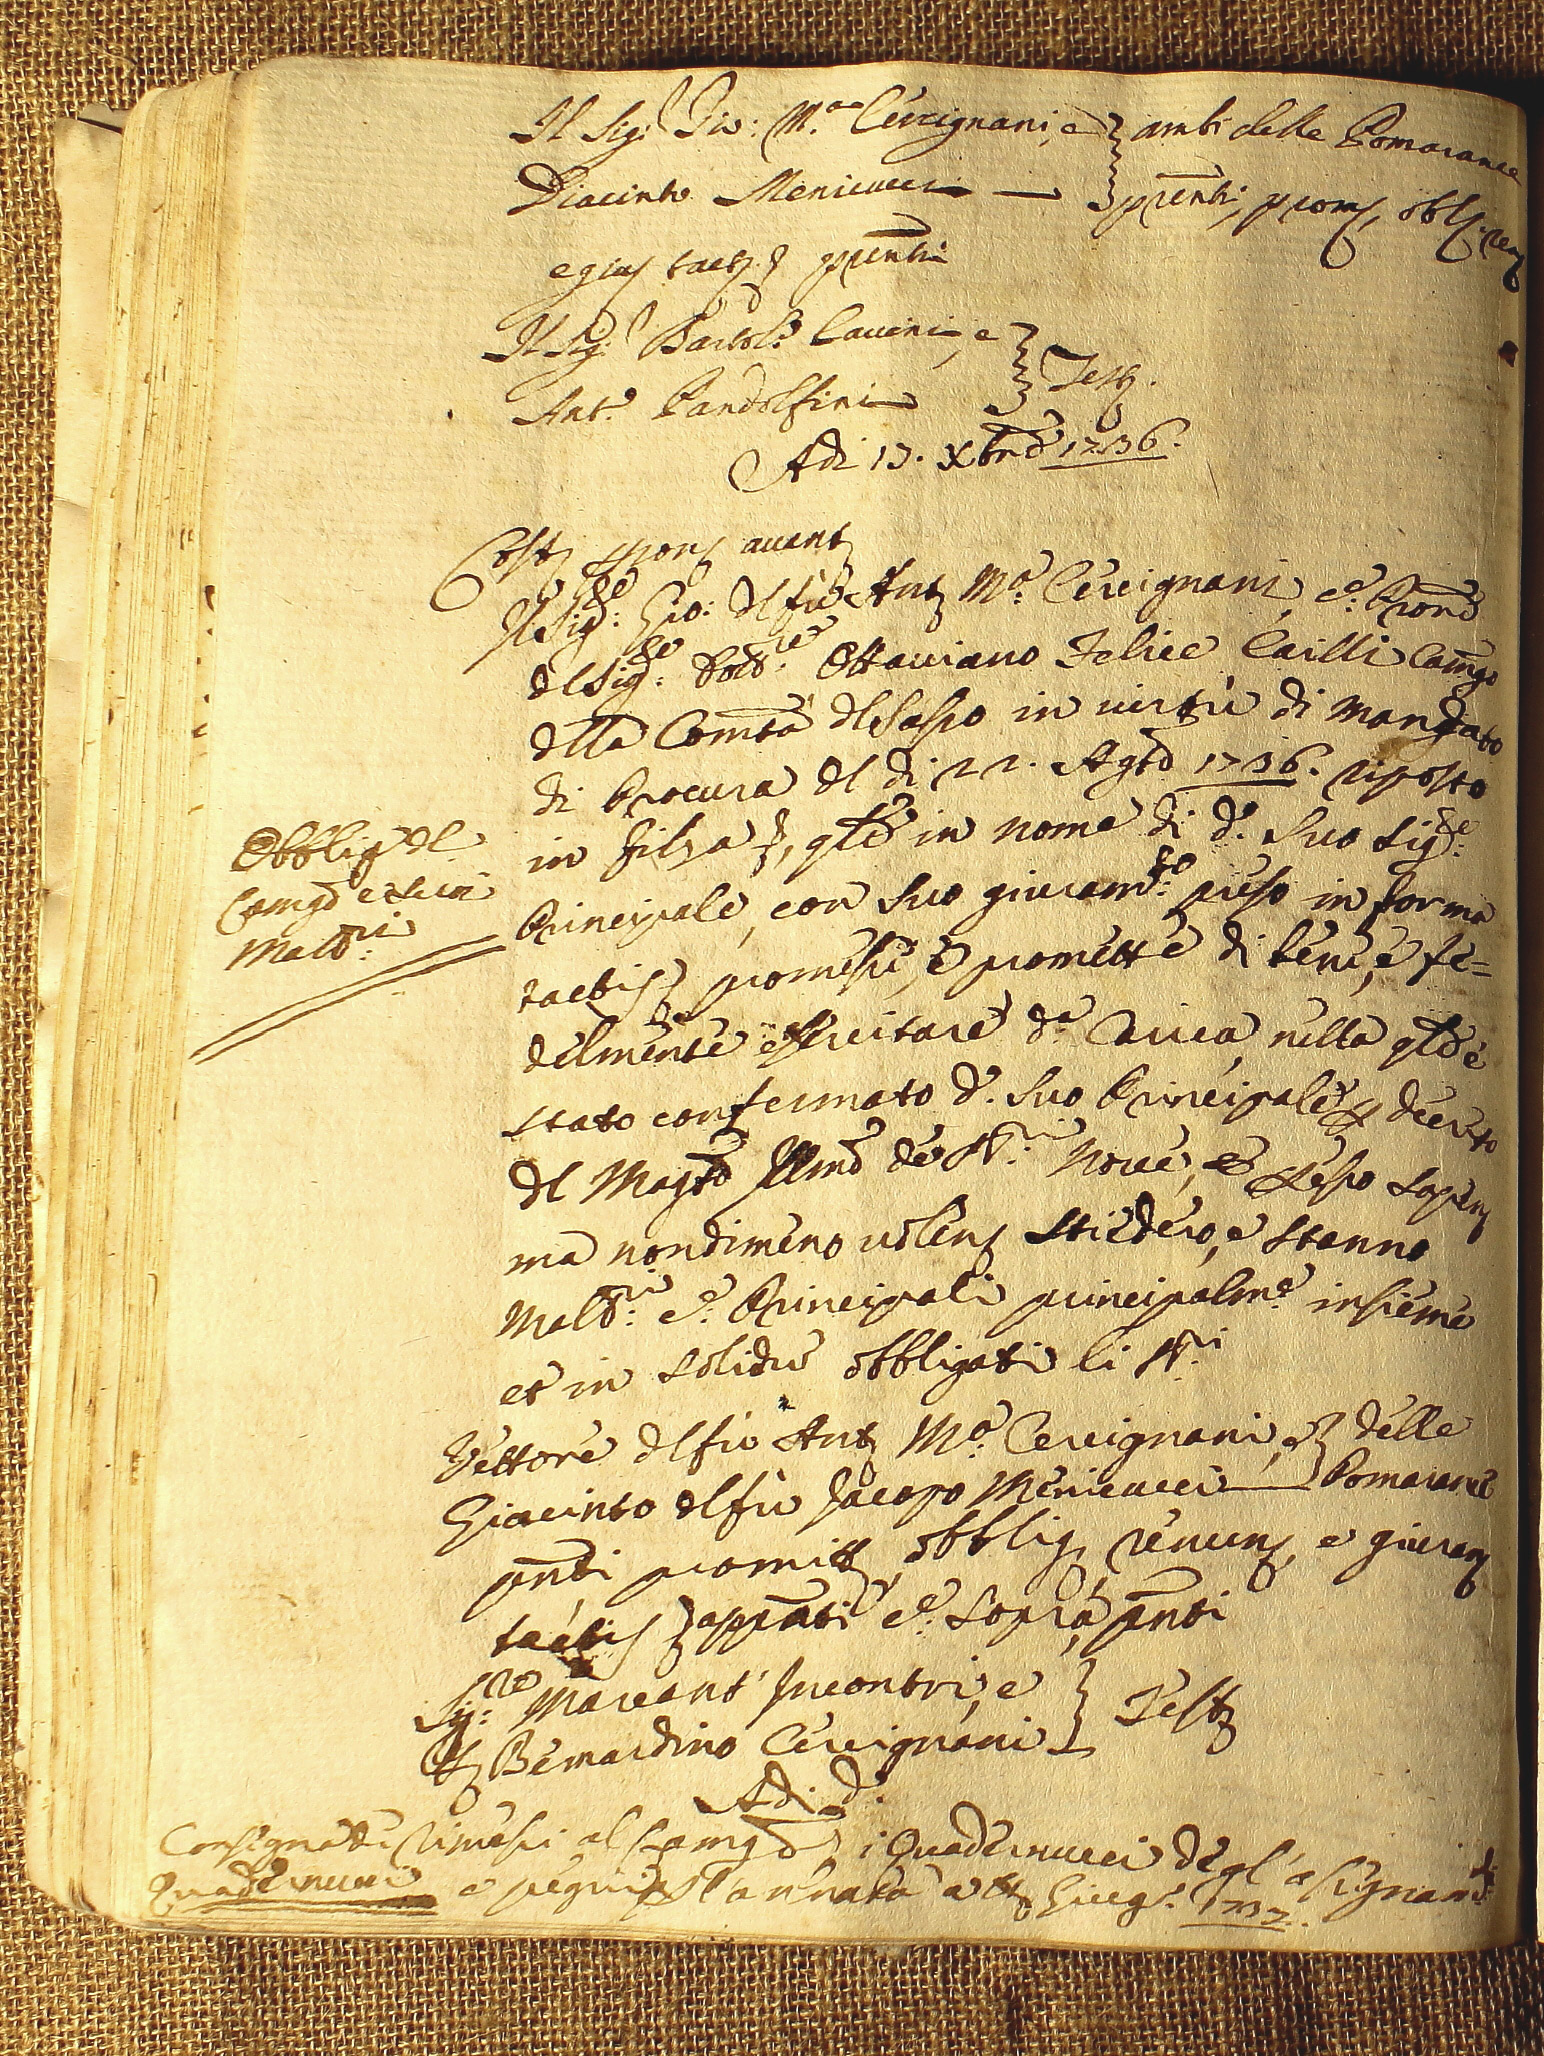 Il Sig.r Gio: M.a Cercignani, e } ambi delle Pomarance
Giacinto Menicucci — } pñti, prom, obbl, ren
e giur tact. pñti
Il Sig.r Bartol.o Cauini, e } Test.
Ant.o Pandolfini
Adi 13. Xbre 1736.
Cost. pers. auant.
Il Sig.re Gio: del fù Ant. M.a Cercignani, e.o Prore
del Sig.re Dott.re Ottauiano Felice Cailli Camgo
della Comtà del Sasso in uirtù di Mandato
di Procura del di 22. Agto 1736. riposto
in filza, qle in nome di d.o Suo Sig.re
Principale, con suo giuram.to preso in forma
tactis promesse, e promette di bene, e fe=
delmente essercitare d.a Carica, nella qle è
stato confermato d.o Suo Principale p decreto
del Magto Illmo de SS.ri Noue, e
ma nondimeno uolens Stiedero, e Stanno
Malleri e.o Principali principalm.e insieme
et in solidu obbligati li SS.ri
Vettore del fù Ant. M.a Cercignani, e } delle
Giacinto del fù Jacopo Menicucci — } Pomarance
pñti, promitt, obblig, renun, e giuran
tactis appñti e.o sopra, pñti
Sig.re Marcant.o Incontri, e } Test
Bernardino Cercignani
Adi d.o
Obblig del
Camgo e suoi
Mall.ri
Consegnati, e rimessi al Camgo i Quadernucci degl'assegnam.ti
Quadernucci p l'annata a tt.o Giug.o 1737.